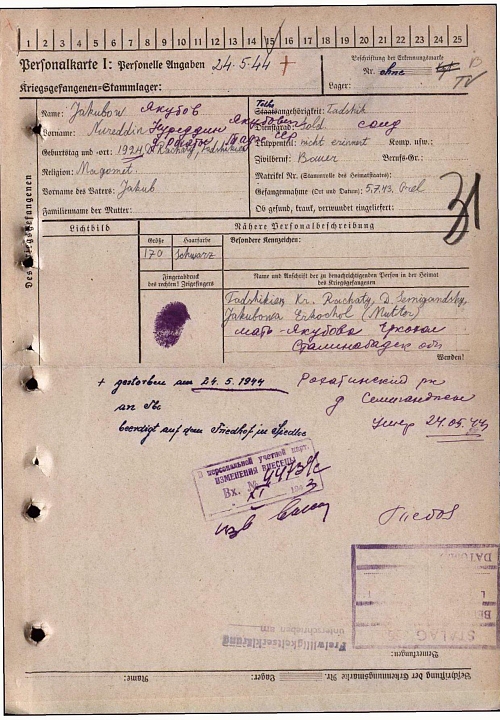 1 2 3 4 5 6 7 8 9 10 11 12 13 14 15 16 17 18 19 20 21 22 23 24 25
Personalkarte I: Personelle Angaben 24.5.44 +
Kriegsgefangenen=Stammlager:
Beschriftung der Erkennungsmarke
Nr. ohne
Lager:
Des Kriegsgefangenen
Name: Jakubow Якубов
Vorname: Nureddin Нуреддин Якубович
Geburtstag und -ort: 1924, Rachaty, Tadshikien
Religion: Magomet.
Vorname des Vaters: Jakub
Familienname der Mutter:
Staatsangehörigkeit: Tadshik
Dienstgrad: Sold. солд
Truppenteil: nicht erinnert Komp. usw.:
Zivilberuf: Bauer Berufs-Gr.:
Matrikel Nr. (Stammrolle des Heimatstaates):
Gefangennahme (Ort und Datum): 5.7.43, Orel
Ob gesund, krank, verwundet eingeliefert:
31
Lichtbild
Nähere Personalbeschreibung
Größe Haarfarbe Besondere Kennzeichen:
170 Schwarz
Fingerabdruck
des rechten! Zeigefingers
Name und Anschrift der zu benachrichtigenden Person in der Heimat
des Kriegsgefangenen
Tadshikien, Kr. Rachaty, D. Semigandsky,
Jakubowa Erkochol (Mutter)
мать - Якубова Еркохол
Сталинабадск обл
Wenden!
Рохатинский рн
д Семигандски
умер 24.05.44
+ gestorben am 24.5.1944
an Tbc
beerdigt auf dem Friedhof in Siedlce
В персональной учетной карт.
ИЗМЕНЕНИЯ ВНЕСЕНЫ
Вх. №
XI 194 3
STALAG
Freiwilligkeitserklärung
unterschrieben am
Bemerkungen:
Beschriftung der Erkennungsmarke Nr. Lager: Name: